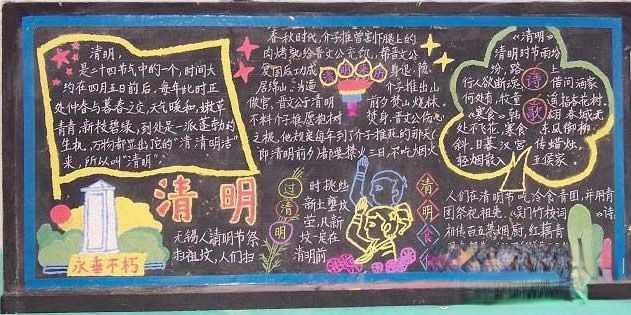 清明,
是二十四节气中的一个,时间大
约在四月五日前后,每年此时正
处仲春与暮春之交,天气暖和,嫩草
青青,新枝碧绿,到处是一派蓬勃的
生机,万物都显出陀的"清清明洁"
来,所以叫"清明"。
春秋时代,介子推曾割下腿上的
肉烤熟给晋文公充饥,帮晋文公
爱国后功成身退,隐
居绵山,当過
清明来历
介子推出山
做官,晋文公于清明前夕焚山烧林,
不料介子推愿抱树焚身,晋文公伤心
之极,他规定每年到了介子推死的那天(
即清明前夕诸禁火三日,不吃烟火
《清明》
清明时节雨纷
纷,路上
行人欲断魂,借问酒家
何处有,牧童遥指杏花村。
诗歌
《寒食》韩翃 春城无
处不飞花,寒食东风御柳
斜。日暮汉宫传蜡烛,
轻烟散入五侯家。
永垂不朽
清明
无锡人清明节祭
扫祖坟,人们扫
过清明
时挑些
新土壅坟
茔,凡新
坟一定在
清明前
清明食
人们在清明节吃冷食青团,并用青
团祭祀祖先,《吴门竹枝词》诗
相传百五禁烟厨,红藕青